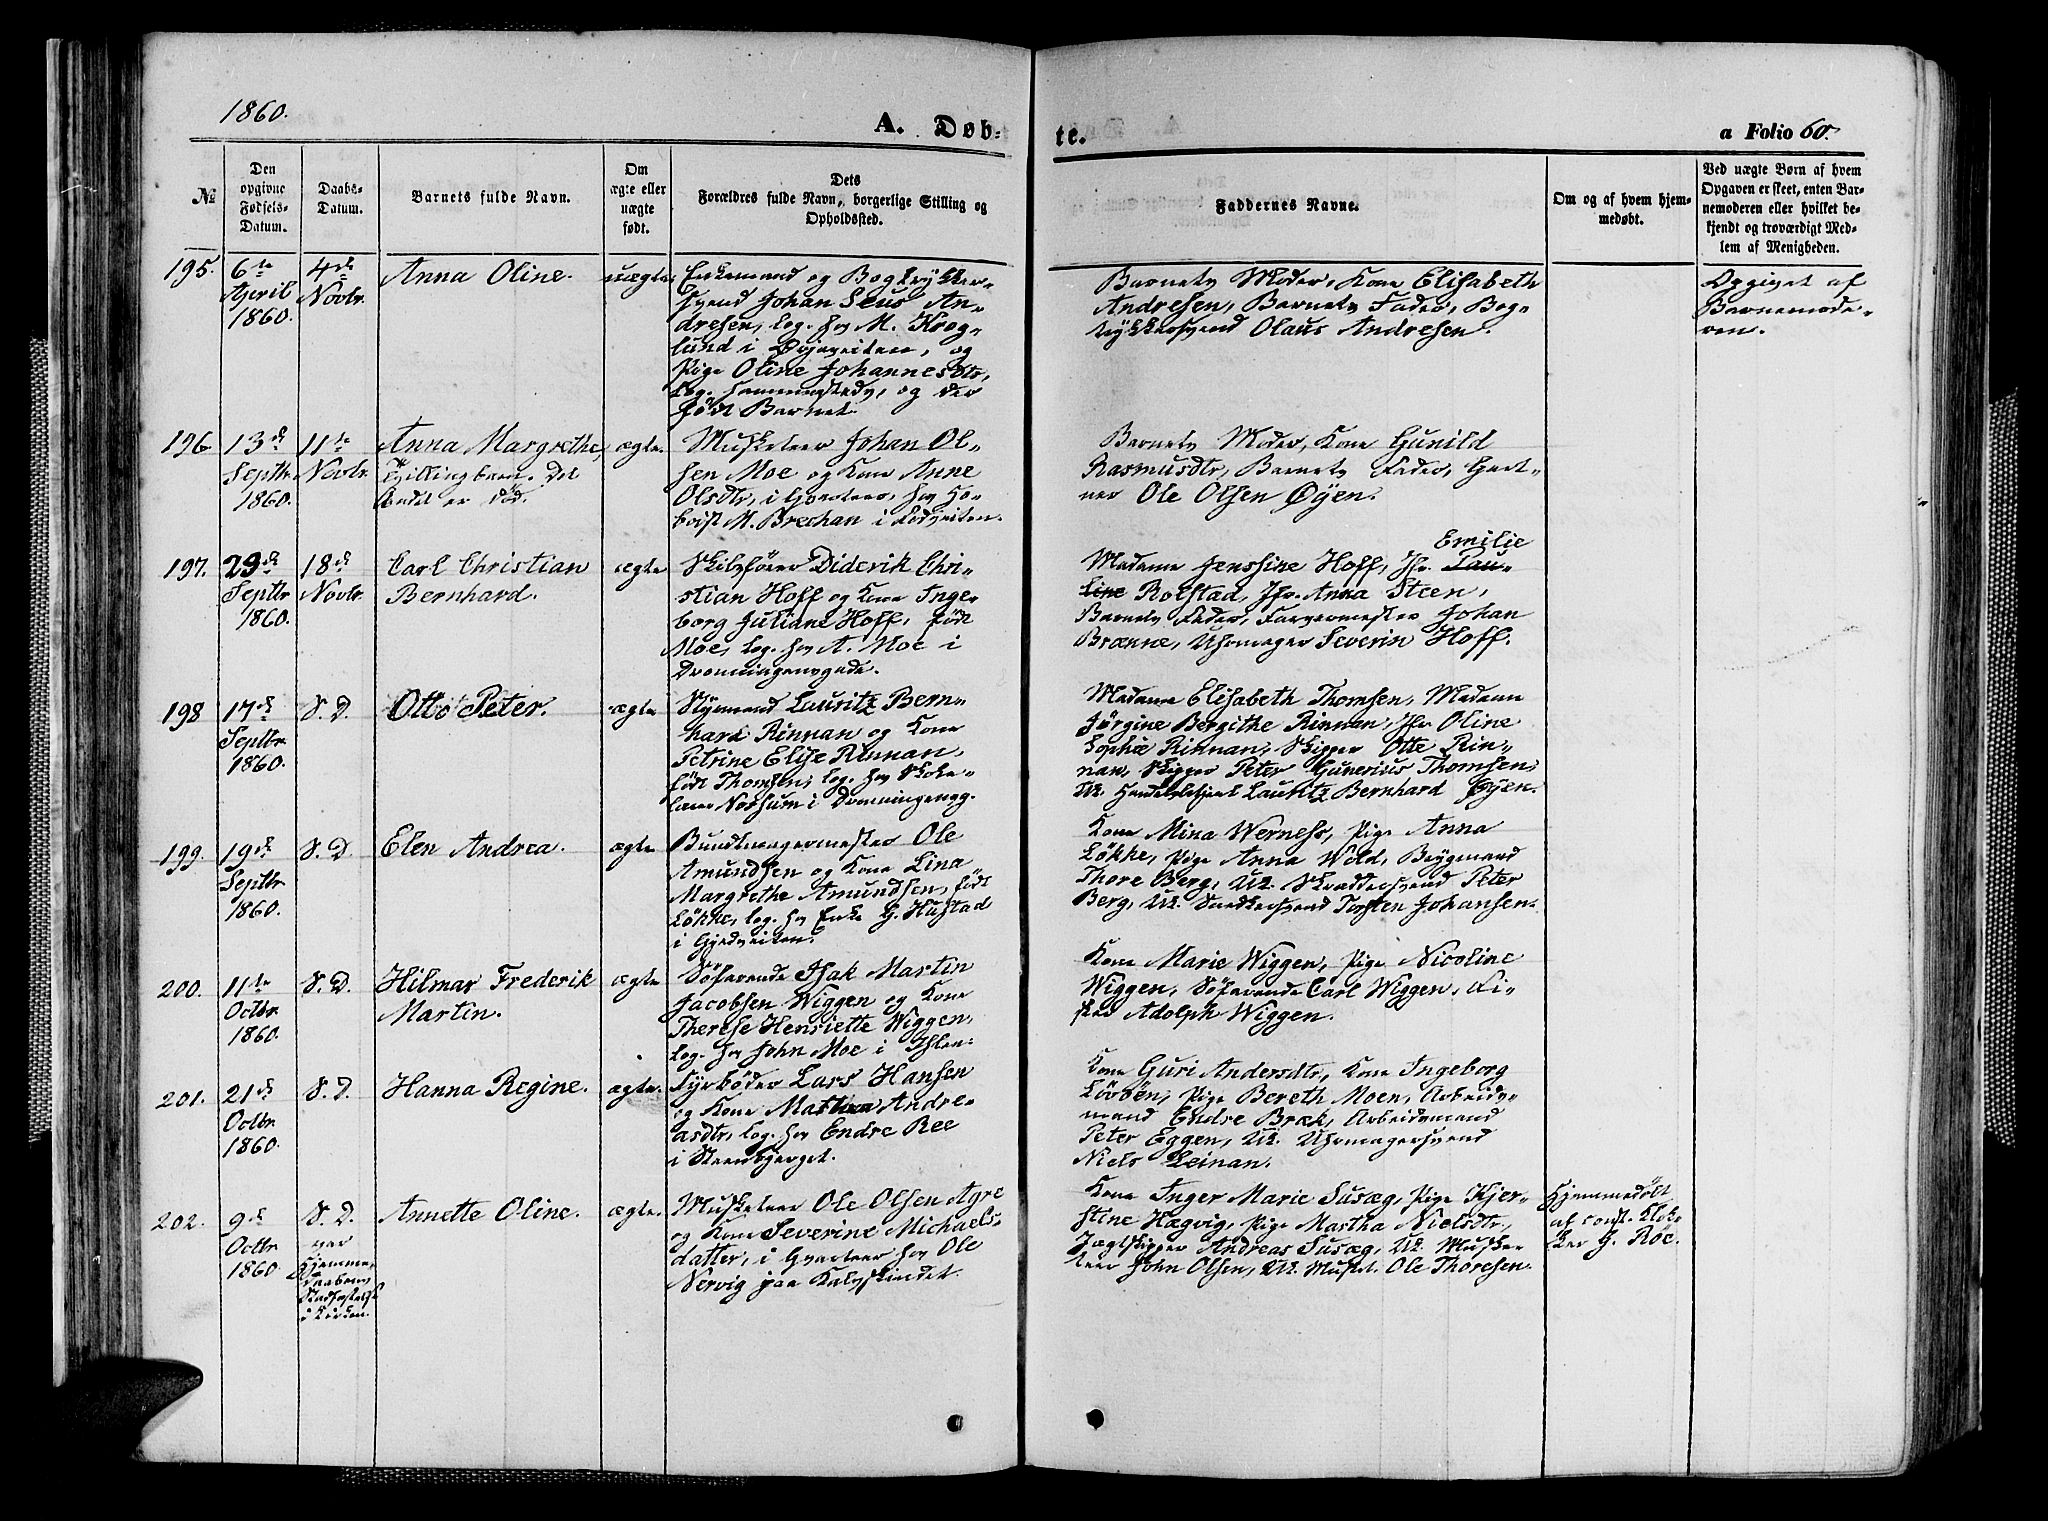 1860.
A. Døb-
te.
a Folio 60.
№
Den opgivne Fødsels-Datum.
Daabs-Datum.
Barnets fulde Navn.
Om ægte eller uægte født.
Dets Forældres fulde Navn, borgerlige Stilling og Opholdssted.
Faddernes Navne.
Om og af hvem hjemmedøbt.
Ved uægte Børn af hvem Opgaven er skeet, enten Barnemoderen eller hvilket bekjendt og troværdigt Medlem af Menigheden.
195.
6te April 1860.
4de Novbr
Anna Oline.
uægte
Enkemand og Bogtrykker-
svend Johan Seus An-
dresen, log. hos M. Krog-
lund i Örjaveiten, og
Pige Oline Johannesdtr,
log. sammesteds, og der
født Barnet.
Barnets Moder, Kone Elisabeth
Andresen, Barnets Fader, Bog-
trykkersvend Olaus Andresen.
Opgivet af
Barnemode-
ren.
196
13de Septbr 1860.
11te Novbr
Anna Margrethe,
Tvillingbarn. Det
andet er død.
ægte.
Musketeer Johan Ol-
sen Moe og Kone Anne
Olsdtr, i Qvarteer hos Ho-
boist M. Brechan i Fedveiten.
Barnets Moder, Kone Gunild
Rasmusdtr, Barnets Fader, Gart-
ner Ole Olsen Øyen.
197.
29de Septbr 1860.
18de Novbr
Carl Christian
Bernhard.
ægte
Skibsfører Diderik Chri-
stian Hoff og Kone Inge-
borg Juliane Hoff, født
Moe, log. hos A. Moe i
Dronningensgade.
Emilie
Madame Jensine Hoff, Jfr. Pau-
line Rolstad, Jfr. Anna Steen,
Barnets Fader, Farvermester Johan
Brænne, Uhrmager Severin Hoff.
198
17de Septbr 1860.
S. D.
Otto Peter.
ægte
Styrmand Lauritz Bern-
hard Rinnan og Kone
Petrine Elise Rinnan,
født Thomsen, log. hos Skole-
lærer Norhum i Dronningensg.
Madame Elisabeth Thomsen, Madam
Jörgine Bergithe Rinnan, Jfr Oline
Sophie Rinnan, Skipper Otte Rin-
nan, Skipper Peter Gunerius Thomsen,
Uk. Handelsbetjent Lauritz Bernhard Øyen.
199.
19de Septbr 1860.
S. D.
Elen Andrea.
ægte
Bundtmagermester Ole
Amundsen og Kone Lina
Margrethe Amundsen, født
Løkke, log. hos Enke G. Hustad
i Gjedveiten.
Kone Mina Werness, Pige Anna
Løkke, Pige Anna Wold, Brygmand
Thore Berg, Uk. Skræddersvend Peter
Berg, Uk. Snedkersvend Torsten Johansen.
200.
11te Octbr 1860.
S. D.
Hilmar Frederik
Martin.
ægte
Söfarende Isak Martin
Jacobsen Wiggen og Kone
Therese Henriette Wiggen,
log. hos John Moe i Ihlen.
Kone Marie Wiggen, Pige Nicoline
Wiggen, Söfarende Carl Wiggen, Fi-
sker Adolph Wiggen.
201.
21de Octbr 1860.
S. D.
Hanna Regine.
ægte.
Fyrböder Lars Hansen
og Kone Marthea Andre-
asdtr, log. hos Endre Ree
i Steenbjerget.
Kone Guri Andersdtr, Kone Ingeborg
Lövöen, Pige Bereth Moen, Arbeids-
mand Endre Bræk, Arbeidsmand
Peter Eggen, Uk. Uhrmagersvend
Niels Leinan.
202.
9de Octbr 1860.
S. D.
var
Hjemme-
Daaben
Stadfæstelse
i Kirken.
Annette Oline.
ægte.
Musketeer Ole Olsen Agre
og Kone Severine Michaels-
datter, i Qvarteer hos Ole
Nervig paa Kalvskindet.
Kone Inger Marie Susæg, Pige Kjer-
stine Hægvig, Pige Martha Nielsdtr,
Jægtskipper Andreas Susæg, Uk. Muske-
teer John Olsen, Uk. Musket. Ole Thoresen.
Hjemmedöbt
af const. Klok-
ker J. Röe.